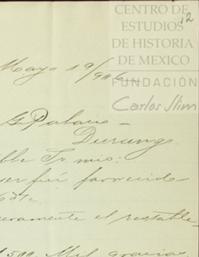 CENTRO DE
ESTUDIOS
DE HISTORIA
DE MEXICO
FUNDACIÓN
Carlos Slim
12
Mayo 19/906
G. Palacio
Durango
ble Sr. mio:
er fuí favorecido
eramente el restable
Mil gracias